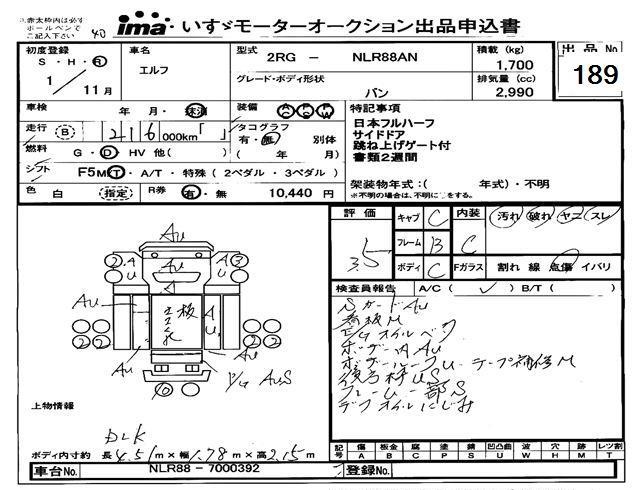 ※赤太枠内は必ず
ボールペンで
ご記入下さい
40
ima いすゞモーターオークション出品申込書
初度登録 S・H・R 1/11月
車名 エルフ
型式 2RG - NLR88AN
グレード・ボディ形状 バン
積載量 (kg) 1,700
排気量 (cc) 2,990
出品No 189
車検 年 月・抹消
装備 AC PS PW
走行 B 216 000km「 」
タコグラフ 有・無 別体
( 年 月)
燃料 G・D・HV 他( )
シフト F5 M T・A/T・特殊(2ペダル・3ペダル)
色 白 (指定) R券 有・無 10,440 円
特記事項
日本フルハーフ
サイドドア
跳ね上げゲート付
書類2週間
架装物年式:( 年式)・不明
※不明の場合は、不明に○をする。
評価 3.5
キャブ C 内装 C 汚れ・破れ・ヤニ・スレ
フレーム B
ボディ C Fガラス 割れ 線 点傷 イバリ
検査員報告 A/C( ✓ ) B/T( )
SガードAu
看板M
E/Gオイルベタ
ボデー内Au
ボデーハーフU テープ補修M
後方枠US
フレーム一部S
デフオイルにじみ
Au
2 A U
A 3 U
Au
A
Au
立看板
A U
2 2
2 2
Au
Au
P/G AUS
10
上物情報
DLK
ボディ内寸約 長 4.51m×幅 1.78m×高 2.15m
記号 傷 板金 腐 塗 錆 凹凸曲 波 穴 跡 レツ割
A B C P S U W H M T
車台No. NLR88 - 7000392
登録No.